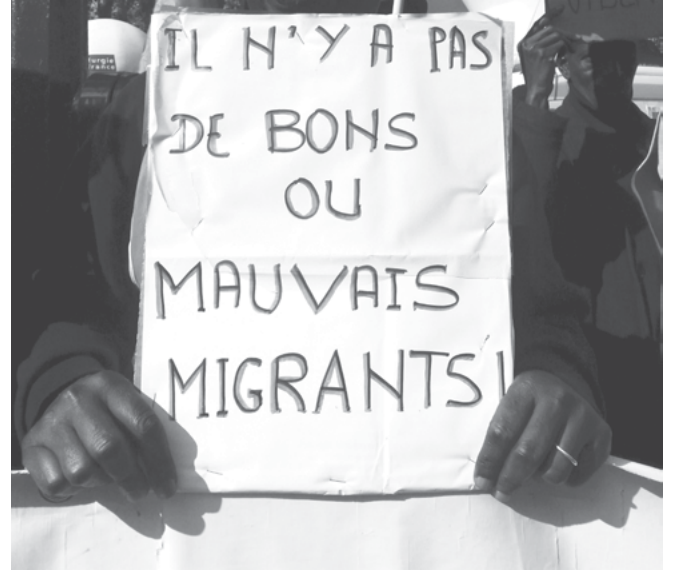 IL N'Y A PAS
DE BONS
OU
MAUVAIS
MIGRANTS!